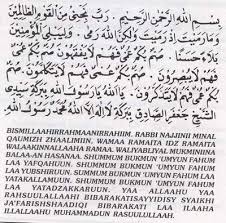 بِسْمِ اللهِ الرَّحْمٰنِ الرَّحِيْمِ. رَبِّ نَجِّنِيْ مِنَ الْقَوْمِ الظَّالِمِيْنَ
وَمَا رَمَيْتَ اِذْ رَمَيْتَ وَلٰكِنَّ اللهَ رَمٰى. وَلِيُبْلِيَ الْمُؤْمِنِيْنَ
بَلَاءً حَسَنًا. صُمٌّ بُكْمٌ عُمْيٌ فَهُمْ
فَهُمْ لَا يُبْصِرُوْنَ. صُمٌّ بُكْمٌ عُمْيٌ فَهُمْ
بُكْمٌ عُمْيٌ فَهُمْ لَا
الشَّيْخِ جَعْفَرِ الصَّادِقِ بِبَرَكَةِ لَا اِلٰهَ اِلَّا اللهُ مُحَمَّدٌ رَسُوْلُ اللهِ
BISMILLAAHIRRAHMAANIRRAHIIM. RABBI NAJJINII MINAL
QAUMIZH ZHAALIMIIN. WAMAA RAMAITA IDZ RAMAITA
WALAAKINNALLAAHA RAMAA. WALIYABLIYAL MUKMINIINA
BALAA-AN HASANAA. SHUMMUM BUKMUN 'UMYUN FAHUM
LAA YAFQAHUUN. SHUMMUM BUKMUN 'UMYUN FAHUM
LAA YUBSHIRUUN. SUMMUM BUKMUN 'UMYUN FAHUM LAA
YATAKALLAMUUN. SHUMMUM BUKMUN 'UMYUN FAHUM
LAA YATADZAKKARUUN. YAA ALLAAHU YAA
RAHIILALLAAHI BIBARAKATISAYYIDISY SYAIKHI
JA'FARISHSHAADIQI BIBARAKATI LAA ILAHA
ILLALLAAHU MUHAMMADUN RASUULULLAAH.